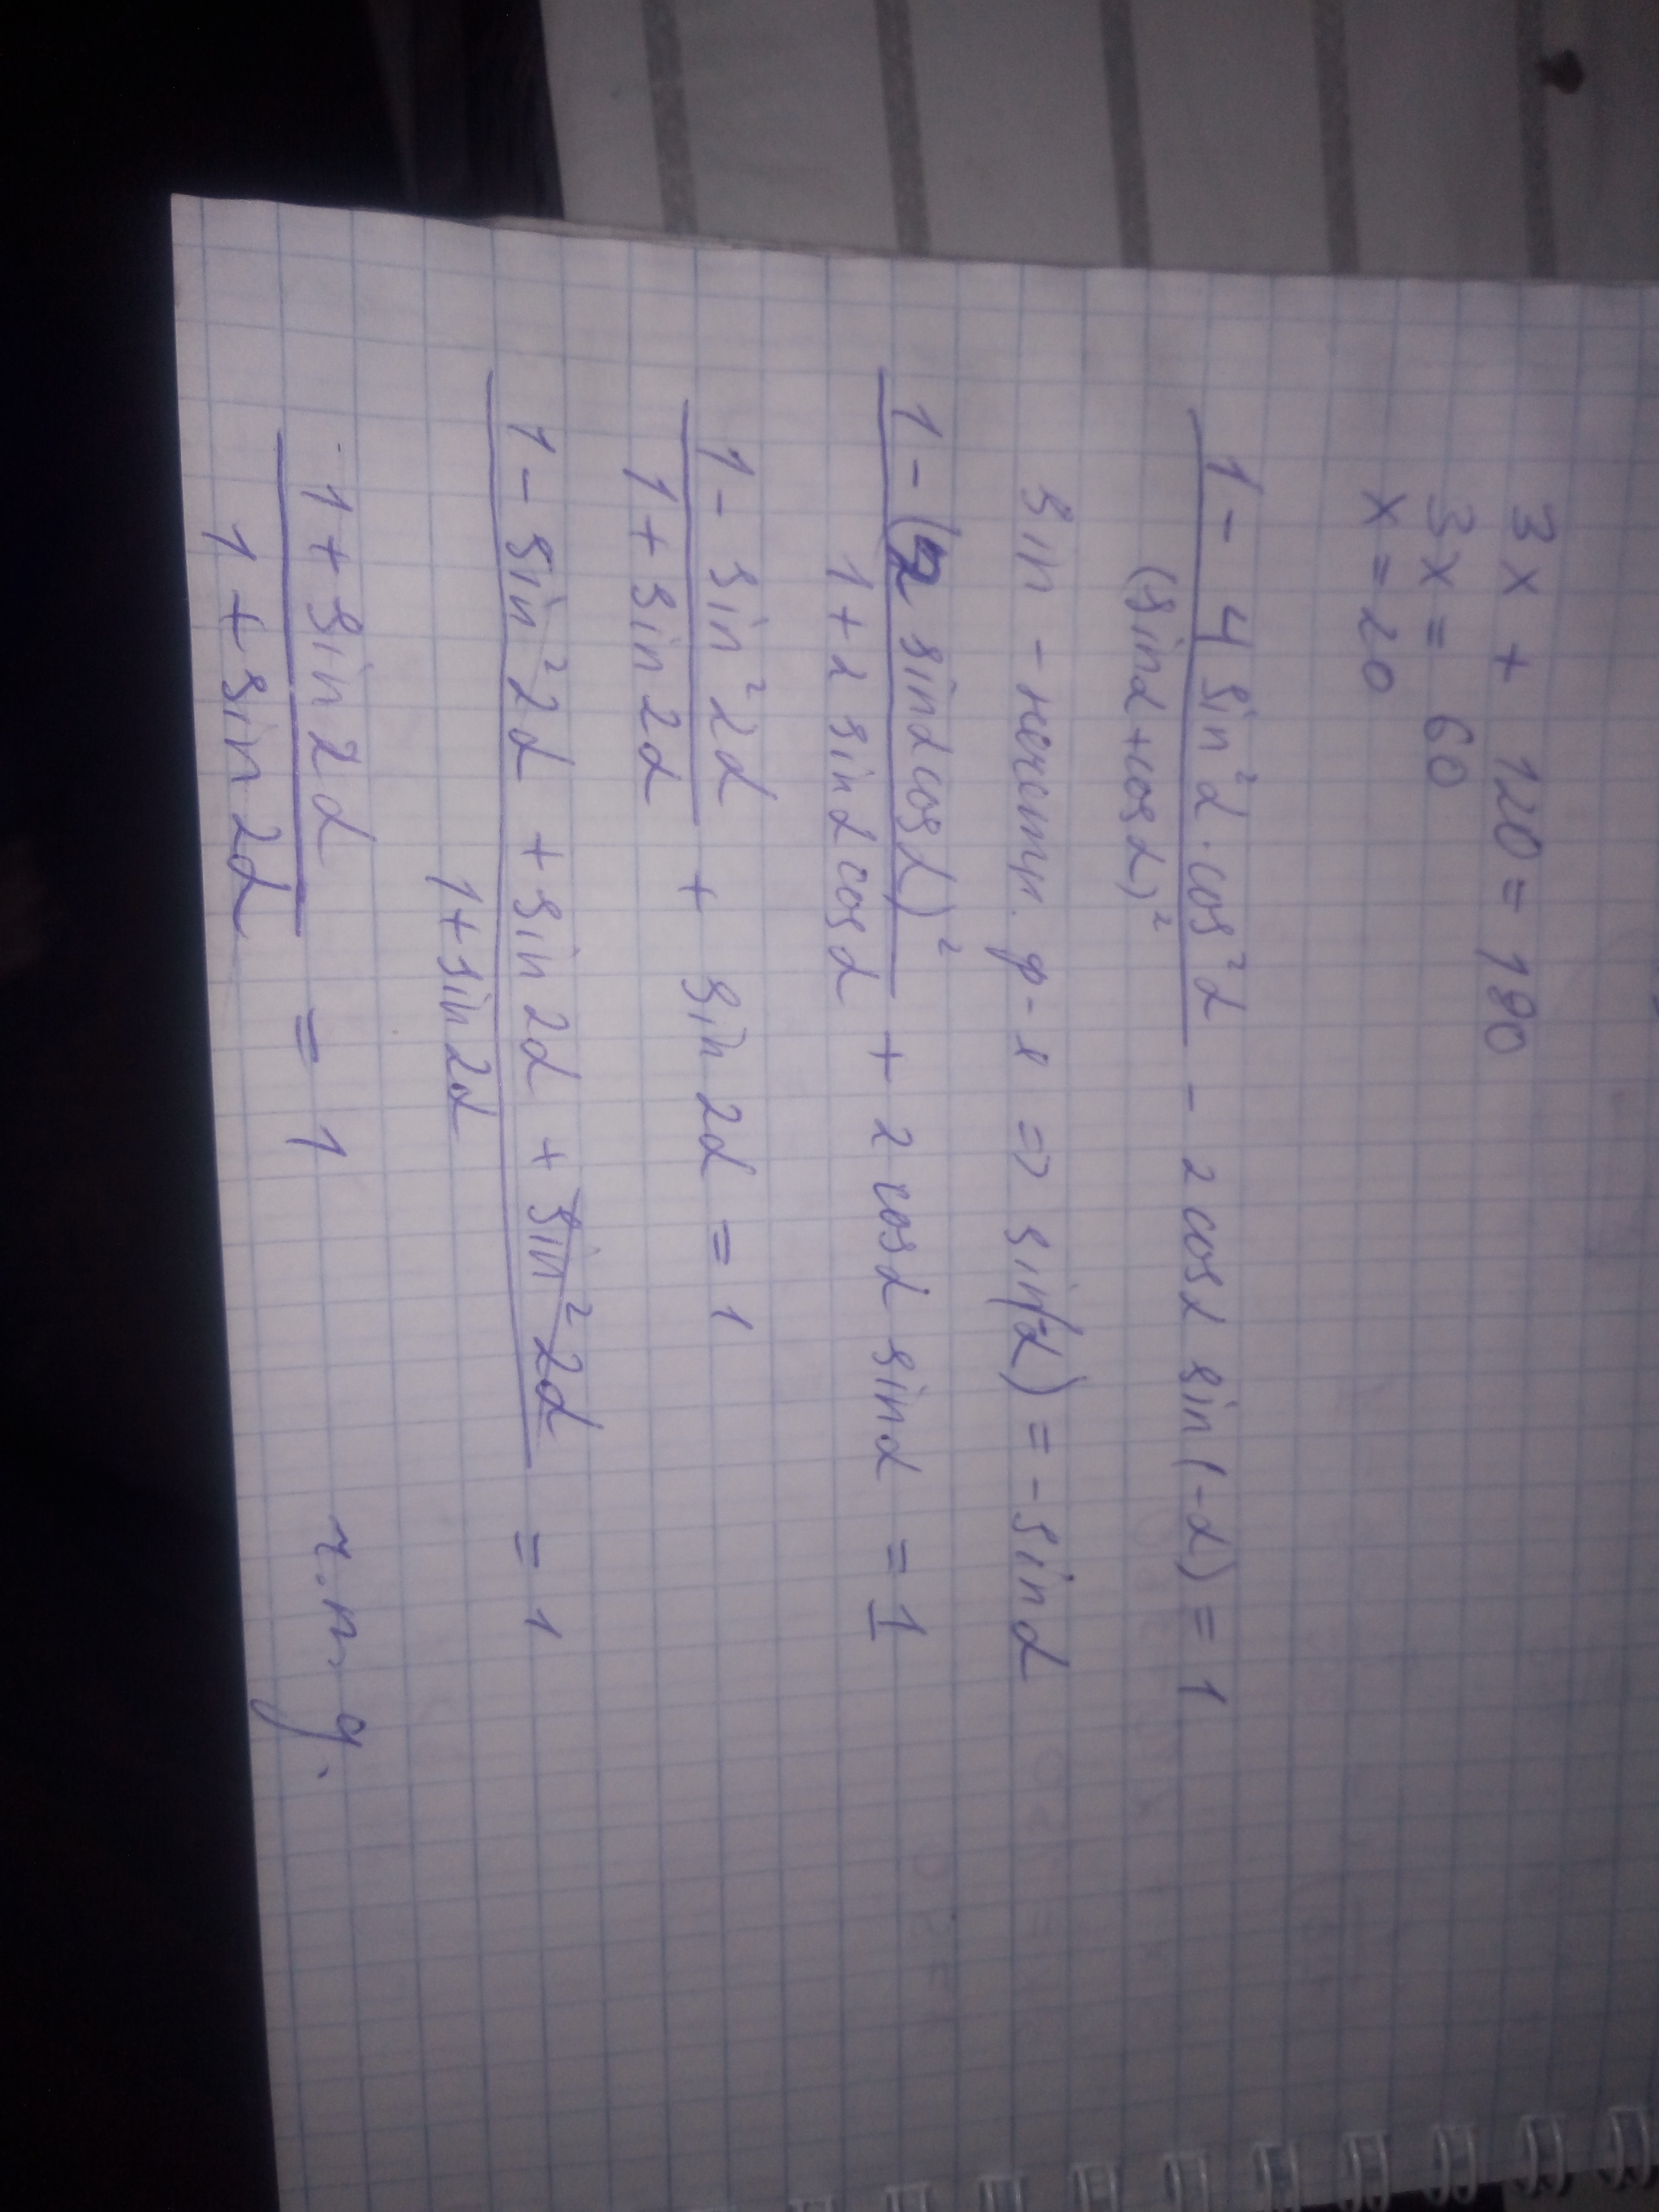 3x + 120 = 180
3x = 60
x = 20
1 - 4 sin²α · cos²α / (sinα + cosα)² - 2 cosα sin(-α) = 1
sin - нечетн. ф-я => sin(-α) = - sinα
1 - (2 sinα cosα)² / 1 + 2 sinα cosα + 2 cosα sinα = 1
1 - sin²2α / 1 + sin2α + sin2α = 1
1 - sin²2α + sin2α + sin²2α / 1 + sin2α = 1
1 + sin2α / 1 + sin2α = 1
ч.т.д.